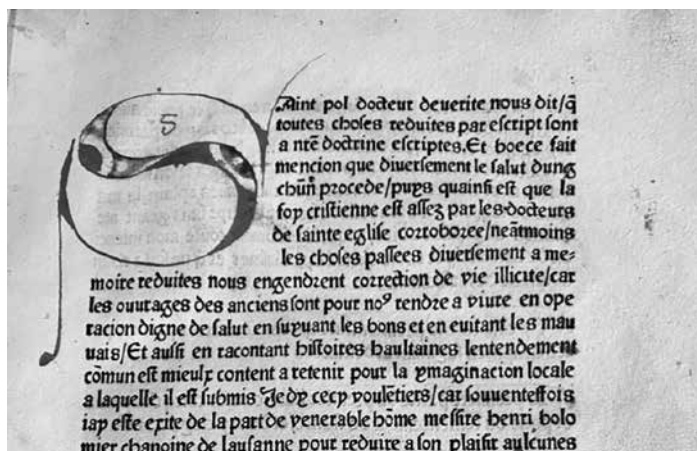 SAint pol docteur deuerite nous dit/q̃
toutes choſes reduites par eſcript ſont
a nrẽ doctrine eſcriptes.Et boece fait
mencion que diuerſement le ſalut dung
chũn procede/puys quainſi eſt que la
foy criſtienne eſt aſſez par les docteurs
de ſainte egliſe corroboree/neãtmoins
les choſes paſſees diuerſement a me⸗
moire reduites nous engendrent correction de vie illicite/car
les ouurages des anciens ſont pour noꝰ rendre a viure en ope
racion digne de ſalut en ſuyuant les bons et en euitant les mau
uais/Et auſſi en racontant hiſtoires haultaines lentendement
cõmun eſt mieulx content a retenir pour la ymaginacion locale
a laquelle il eſt ſubmis Je dy cecy voulẽtiers/car ſouuenteffois
iay eſte exite de la part de venerable hõme meſſire henri bolo
mier chanoine de lauſanne pour reduire a ſon plaiſir aulcunes